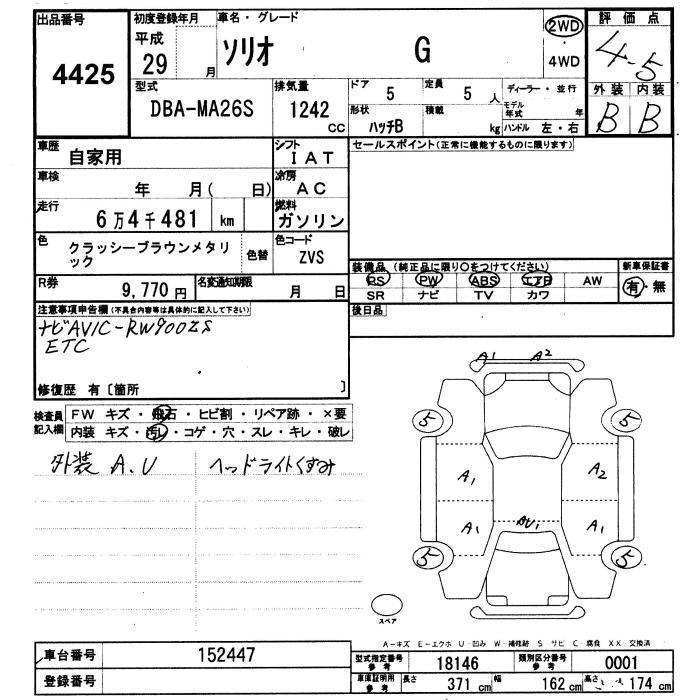 出品番号 4425
初度登録年月 平成 29 月
車名・グレード ソリオ G
2WD ・ 4WD
評価点 4-5
外装 内装
B B
型式 DBA-MA26S
排気量 1242 CC
ドア 5
定員 5 人
形状 ハッチB
積載 kg
ディーラー・並行
モデル年式 年
ハンドル 左・右
車歴 自家用
シフト IAT
セールスポイント(正常に機能するものに限ります)
車検 年 月( 日)
冷房 AC
走行 6万4千481 km
燃料 ガソリン
色 クラッシーブラウンメタリ
ック
色替
色コード ZVS
R券 9,770円
名変通知期限 月 日
装備品 (純正品に限り○をつけてください)
PS PW ABS エアB AW
SR ナビ TV カワ
新車保証書 有・無
注意事項申告欄(不具合内容等は具体的に記入して下さい)
後日品
ナビAVIC-RW900ZS
ETC
修復歴 有〔箇所 〕
検査員記入欄
FW キズ・飛石・ヒビ割・リペア跡・×要
内装 キズ・汚レ・コゲ・穴・スレ・キレ・破レ
外装 A.U
ヘッドライトくすみ
A1 A2
5 5
A1 A2
A1 AU1 A1
5 5
スペア
A-キズ E-エクボ U-凹み W-補修跡 S サビ C-腐食 XX-交換済
車台番号 152447
登録番号
型式指定番号 参考 18146
類別区分番号 参考 0001
車庫証明用 参考 長さ 371 cm 幅 162 cm 高さ 174 cm